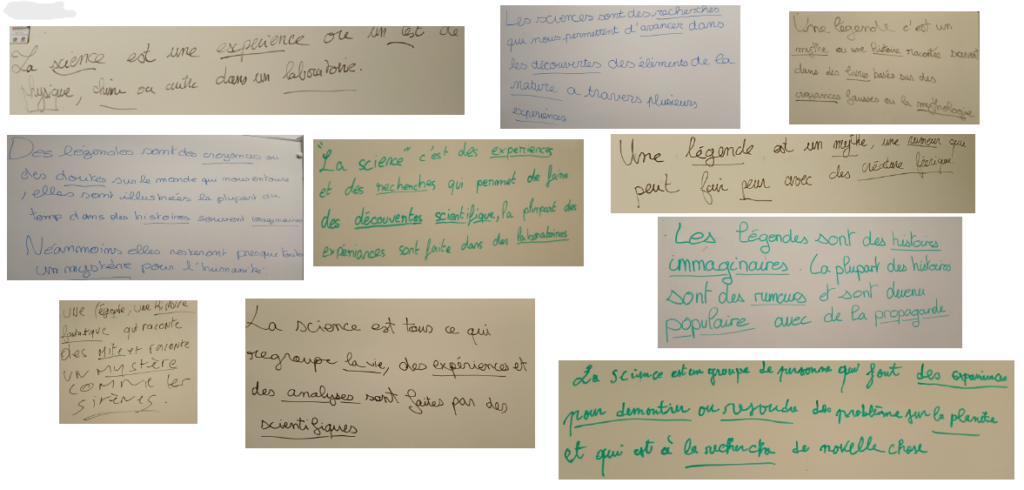 La science est une experience ou un test de
physique, chimi ou autre dans un laboratoire.
Les sciences sont des recherches
qui nous permettent d'avancer dans
les découvertes des éléments de la
nature a travers plusieurs
expériences
Une légende c'est un
mythe ou une histoire racontée souvent
dans des livres basés sur des
croyances fausses ou la mythologie
Des légendes sont des croyances ou
des doutes sur le monde qui nous entoure
, elles sont illustrées la plupart du
temp dans des histoires souvent imaginaires
Néammoins elles resteront presque toutes
un mystère pour l'humanité
"La science" c'est des experiences
et des recherches qui permet de faire
des découvertes scientifique, la plupart des
expériances sont faite dans des laboratoires
Une légende est un mythe, une rumeur que
peut fair peur avec des créature féerique.
Les légendes sont des histoires
immaginaires. La plupart des histoires
sont des rumeurs et sont devenu
populaire avec de la propagande
UNE légende, une histoire
fantastique qui raconte
Des Mite et raconte
UN MYSTÈRE
COMME les
sirènes.
La science est tous ce qui
regroupe la vie, des expériences et
des analyses sont faites par des
scientifiques
La science est un groupe de personne qui font des experiences
pour demontrer ou resoudre des problème sur la planète
et qui est à la recherche de novelle chose